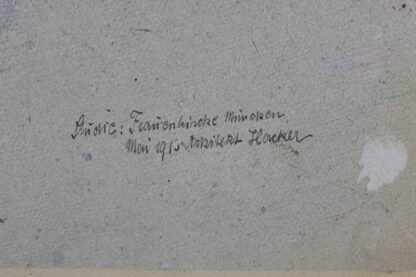 Studie: Frauenkirche München
Mai 1915 Architekt Hacker